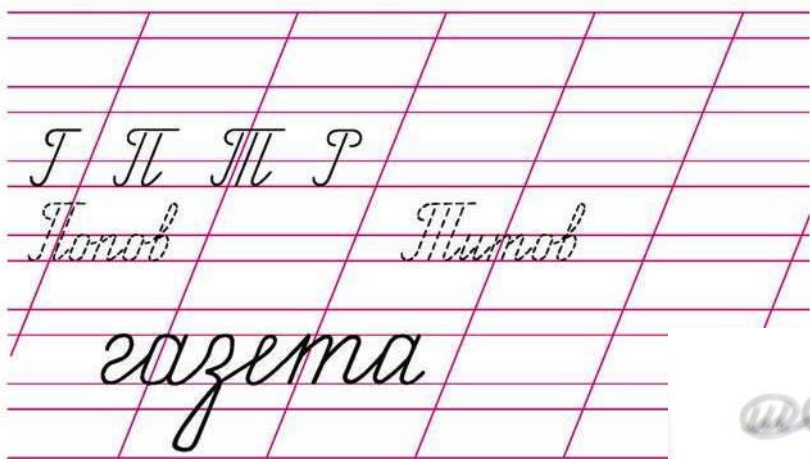 Г П Т Р
Попов Титов
газета